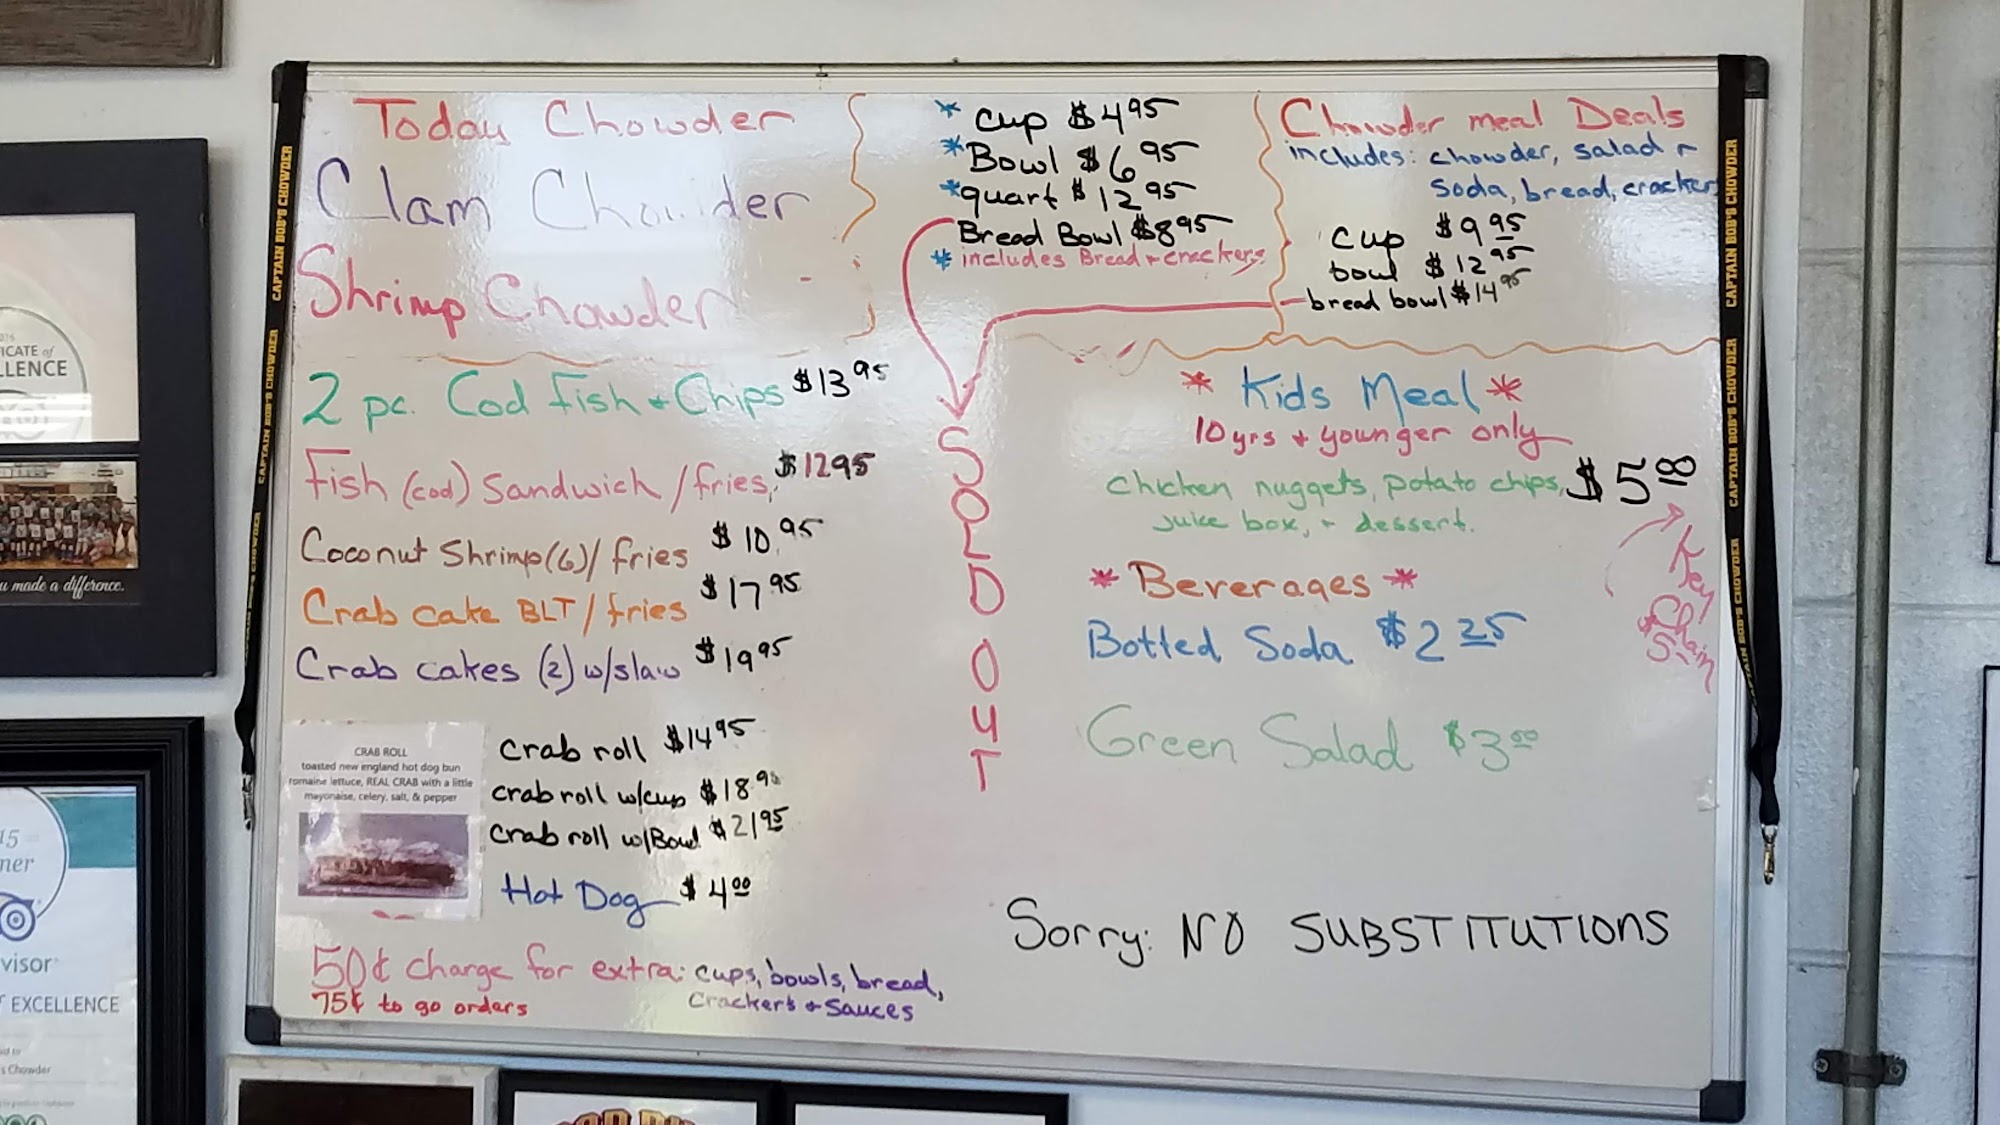 Today Chowder
Clam Chowder
Shrimp Chowder
* Cup $4.95
* Bowl $6.95
* quart $12.95
Bread Bowl $8.95
* includes Bread + crackers
Chowder meal Deals
includes: chowder, salad +
soda, bread, cracker
cup $9.95
bowl $12.95
bread bowl $14.95
SOLD OUT
2 pc. Cod Fish + Chips $13.95
Fish (cod) Sandwich / fries, $12.95
Coconut Shrimp (6) / fries $10.95
Crab cake BLT / fries $17.95
Crab cakes (2) w/slaw $19.95
CRAB ROLL
toasted new england hot dog bun
romaine lettuce, REAL CRAB with a little
mayonaise, celery, salt, & pepper
crab roll $14.95
crab roll w/cup $18.95
crab roll w/Bowl $21.95
Hot Dog $4.00
50¢ charge for extra: cups, bowls, bread,
crackers + sauces
75¢ to go orders
* Kids Meal *
10 yrs + younger only
chicken nuggets, potato chips, $5.00
juice box, + dessert.
Key
Chain
$5-
* Beverages *
Botted Soda $2.25
Green Salad $3.00
Sorry: NO SUBSTITUTIONS
CAPTAIN BOB'S CHOWDER
CAPTAIN BOB'S CHOWDER
CAPTAIN BOB'S CHOWDER
CAPTAIN BOB'S CHOWDER
CAPTAIN BOB'S CHOWDER
CAPTAIN BOB'S CHOWDER
made a difference.
EXCELLENCE
Chowder